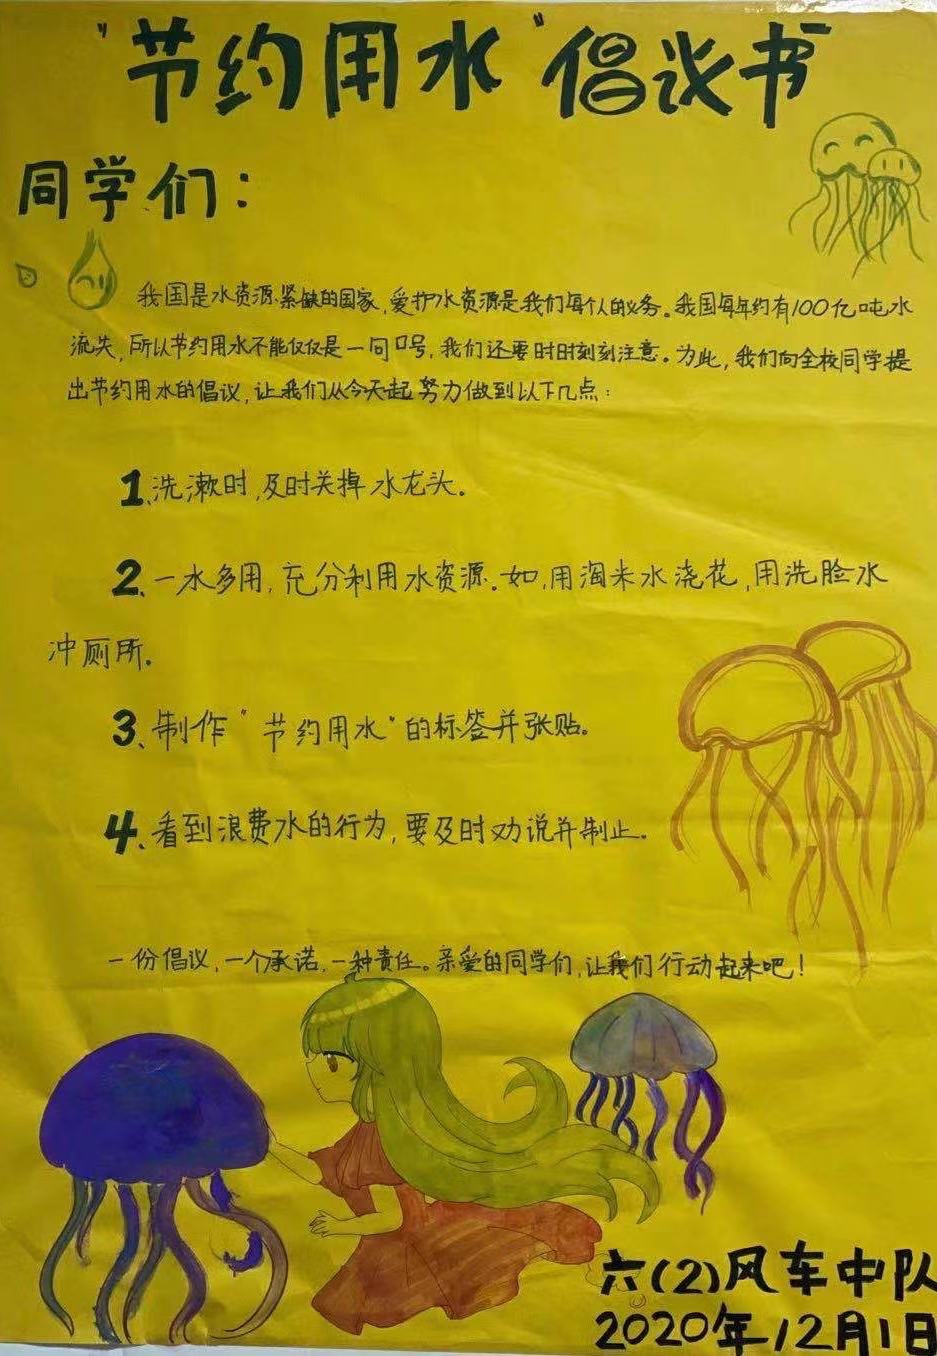 "节约用水"倡议书
同学们：
我国是水资源紧缺的国家,爱护水资源是我们每个人的义务。我国每年约有100亿吨水
流失,所以节约用水不能仅仅是一句口号,我们还要时时刻刻注意。为此,我们向全校同学提
出节约用水的倡议,让我们从今天起努力做到以下几点：
1、洗漱时,及时关掉水龙头。
2、一水多用,充分利用水资源.如,用淘米水浇花,用洗脸水
冲厕所.
3、制作"节约用水"的标签并张贴。
4、看到浪费水的行为,要及时劝说并制止.
一份倡议,一个承诺,一种责任。亲爱的同学们,让我们行动起来吧！
六(2)风车中队
2020年12月1日